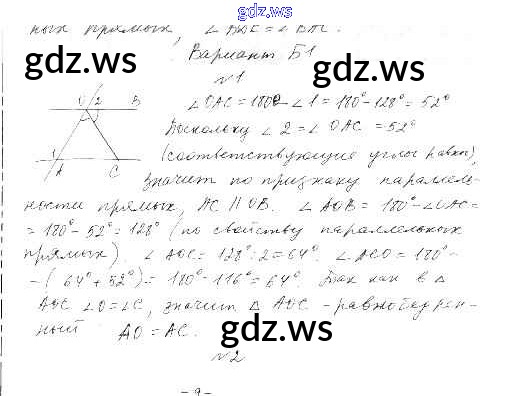 www.gdz.ws
ных прямых, ∠
gdz.ws
Вариант Б1
gdz.ws
№1
O 2 B
1 A C
∠OAC = 180° - ∠1 = 180° - 128° = 52°
Поскольку ∠2 = ∠OAC = 52°
(соответствующие углы равны),
значит по признаку параллель-
ности прямых, AC || OB. ∠AOB = 180° - ∠OAC =
= 180° - 52° = 128° (по свойству параллельных
прямых). ∠AOC = 128° : 2 = 64°. ∠ACO = 180° -
- (64° + 52°) = 180° - 116° = 64°. Так как в △
AOC ∠O = ∠C, значит △ AOC - равнобедрен-
ный AO = AC.
gdz.ws
gdz.ws
№2
- 9 -